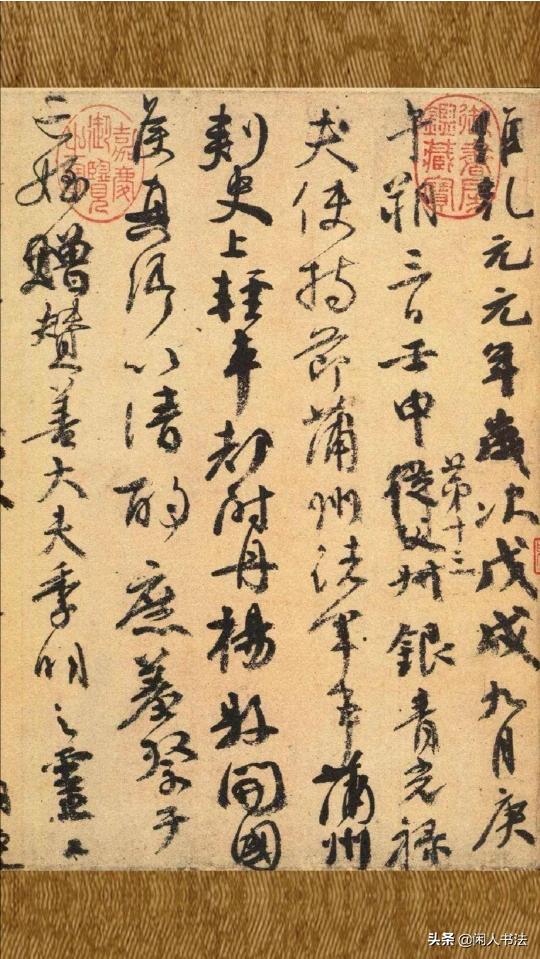 維乾元元年歲次戊戌九月庚
午朔三日壬申第十三叔銀青光祿
夫使持節蒲州諸軍事蒲州
刺史上輕車都尉丹楊縣開國
侯真卿以清酌庶羞祭于
亡姪贈贊善大夫季明之靈曰
御書房鑑藏寶
嘉慶御覽之寶
头条 @闲人书法